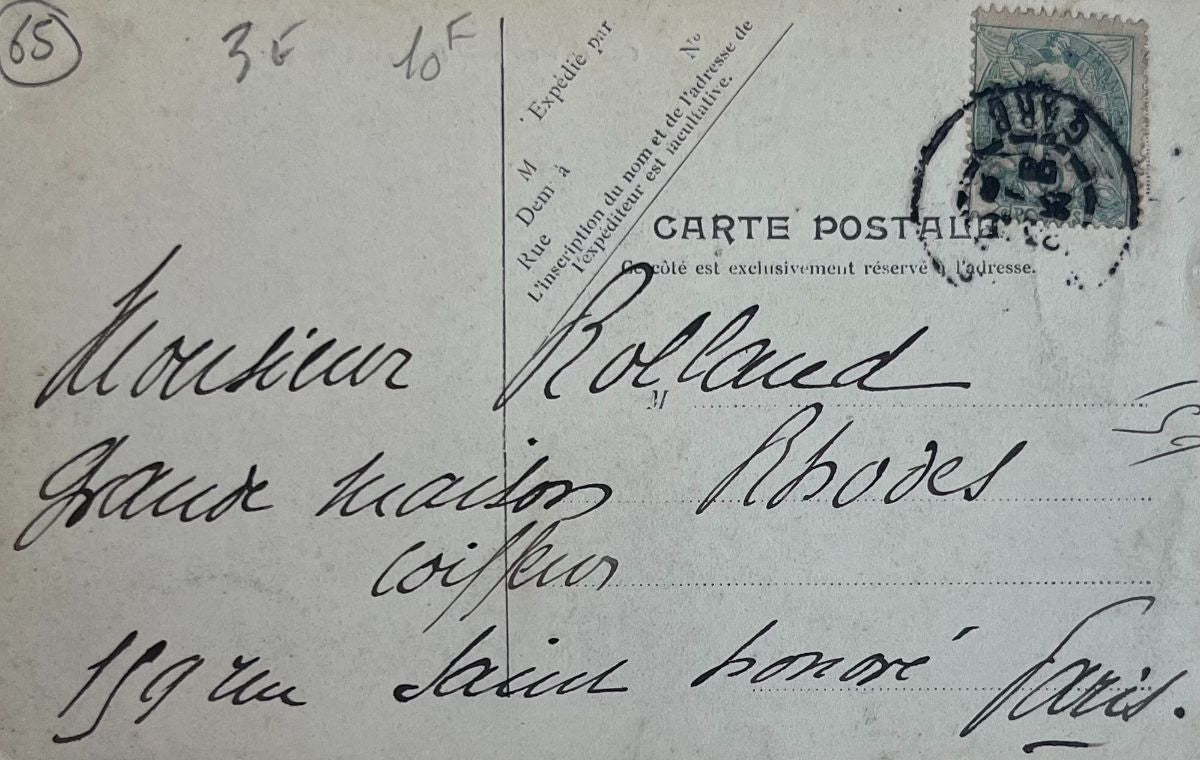 65
3F 10F
Expédié par
M N°
Dem^t à
Rue
L'inscription du nom et de l'adresse de
l'expéditeur est facultative.
GARE
CARTE POSTALE
Ce côté est exclusivement réservé à l'adresse.
Monsieur Rolland
M
Grande maison Rhodes
coiffeur
159 rue Saint honoré Paris.